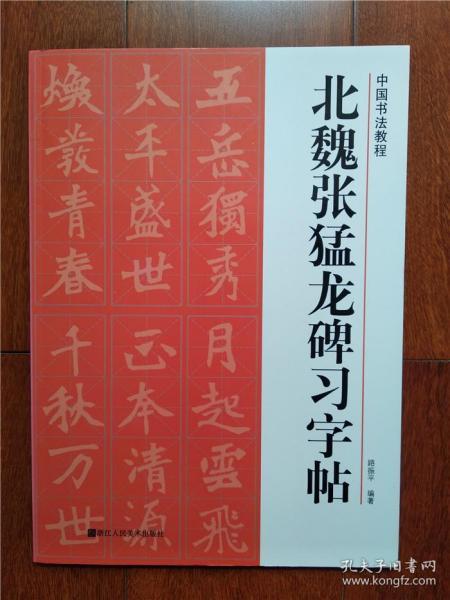 中国书法教程
北魏张猛龙碑习字帖
路振平 编著
五岳獨秀
月起雲飛
太平盛世
正本清源
焕發青春
千秋万世
浙江人民美术出版社
孔夫子旧书网
www.kongfz.com